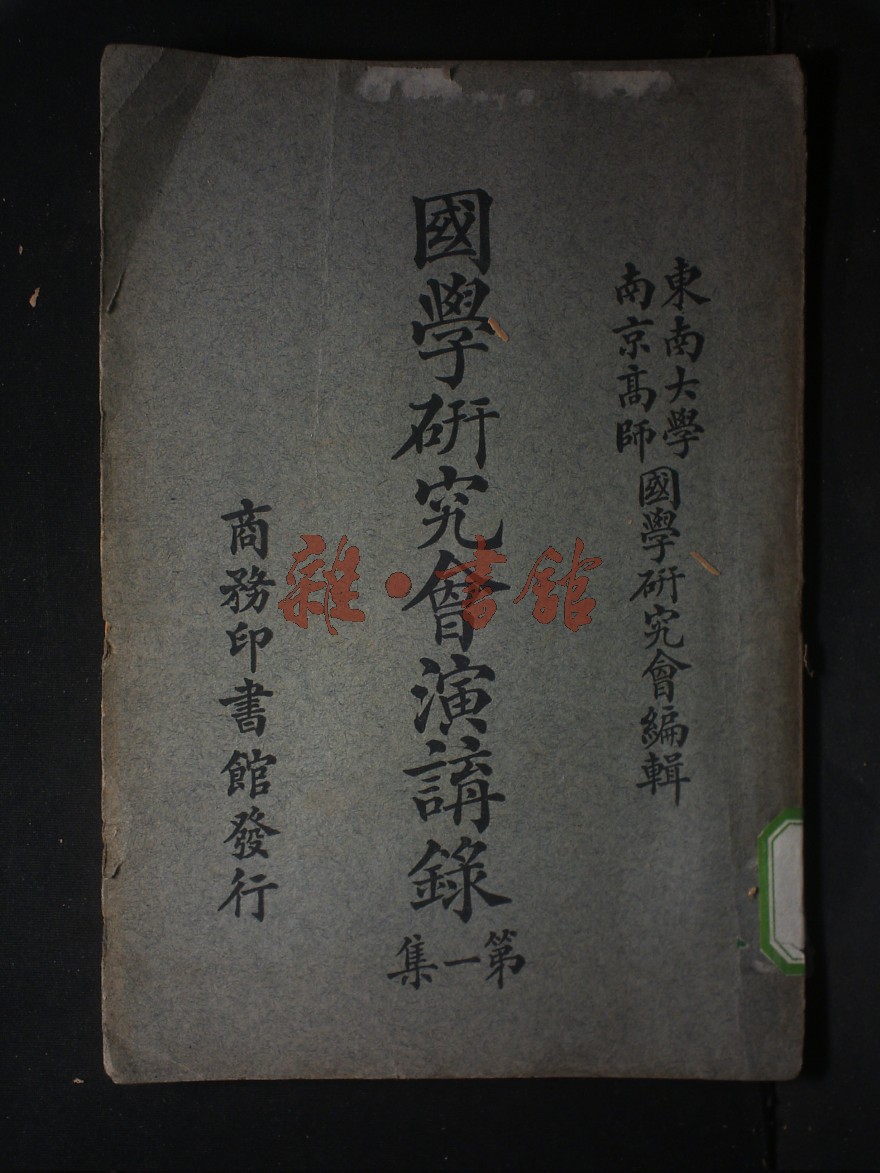 東南大學
南京高師
國學研究會編輯
國學研究會演講錄
第一集
商務印書館發行
雜·書館